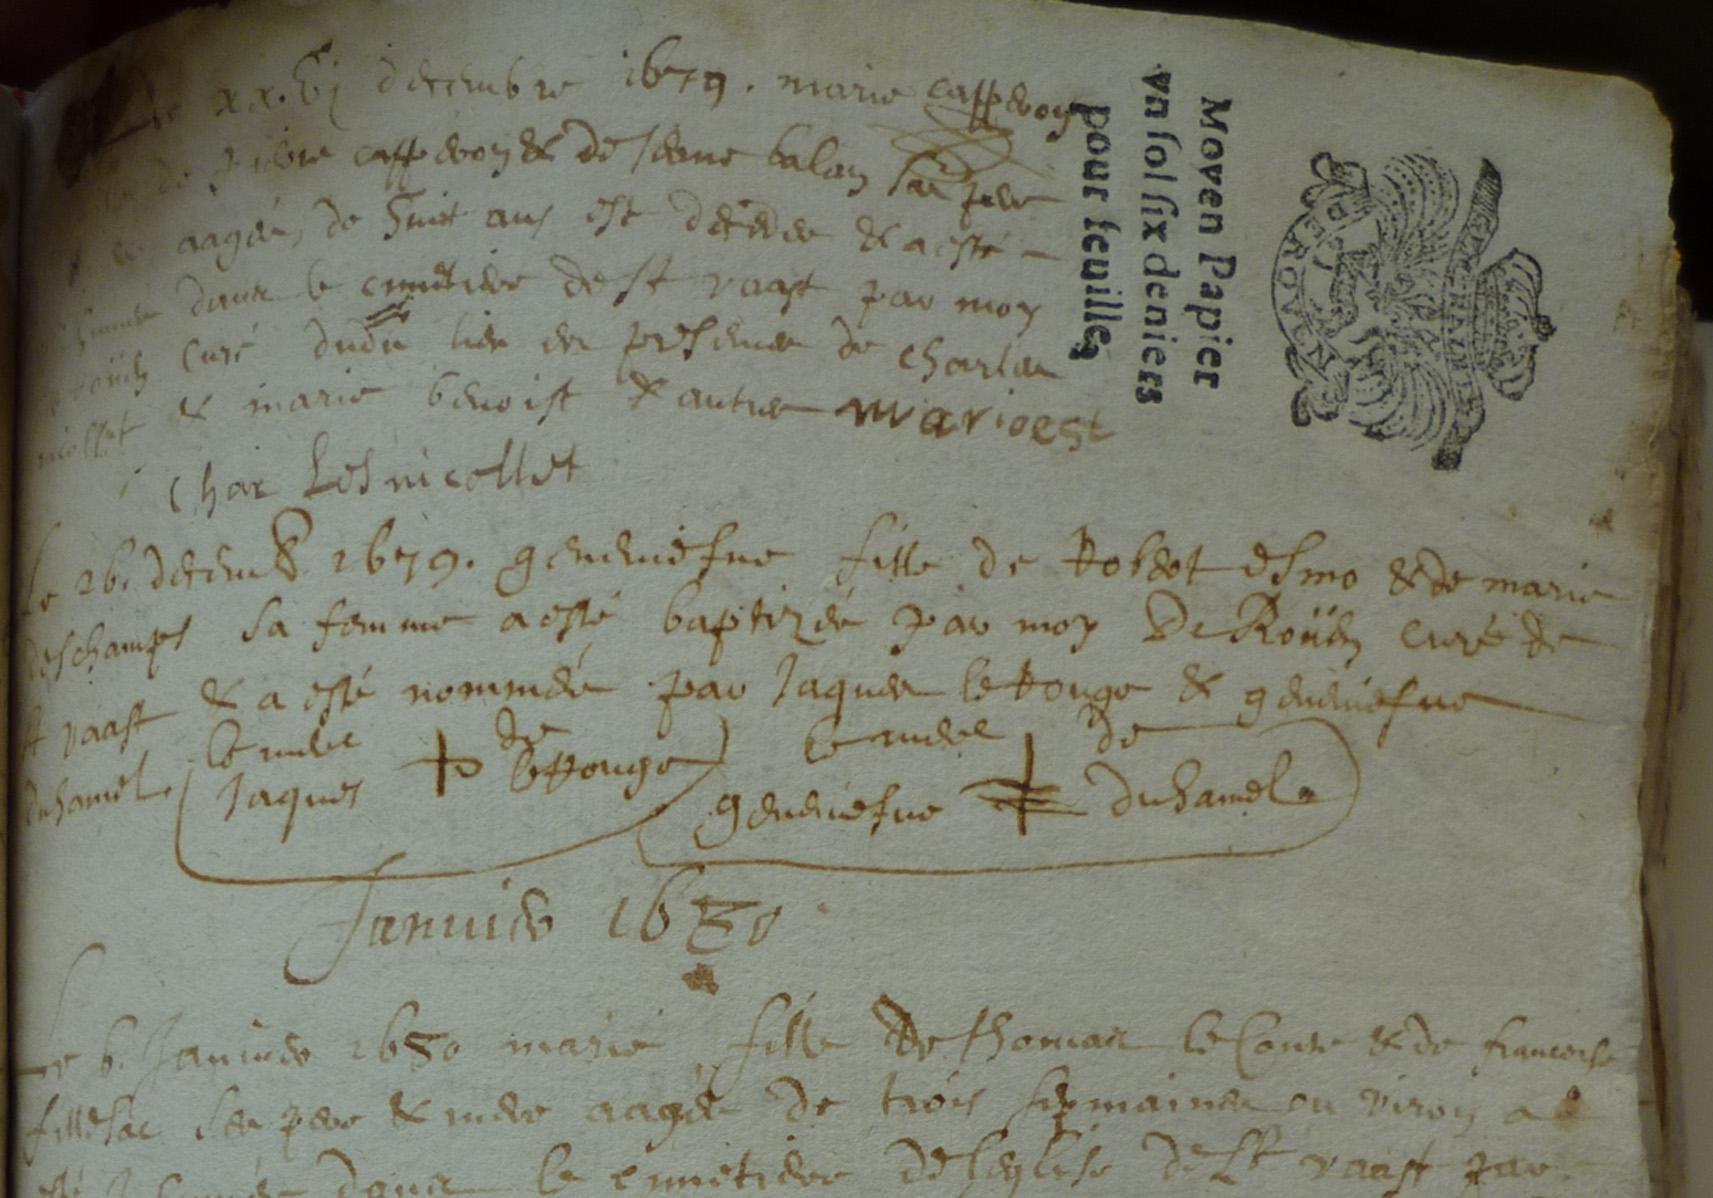 Le xxvj decembre 1679. marie cappron
fille de pierre cappron & de Jenne balan ses pere
& mere aagée de huit ans est decedee & a esté
inhumée dans le cimetiere de st vaast par moy
De Roüen curé dudit lieu en presence de charles
nicollet & marie benoist & autres marioest
Char Les nicollet
Moyen Papier
vn sol six deniers
pour feuille
Le 26. decemb. 1679. geneuiefue fille de Robert esmo & de marie
deschamps sa femme a esté baptizée par moy De Roüen curé de
st vaast & a esté nommée par Jaques le Rouge & geneuiefue
duhamel. le merc de
Jaques + le Rouge
le merc de
geneuiefue + duhamel
Januier 1680
Le 6. Januier 1680 marie fille de thomas le Conte & de francoise
ses pere & mere aagée de trois sepmaines ou viron a
esté Inhumée dans le cimetiere de leglise de st vaast par